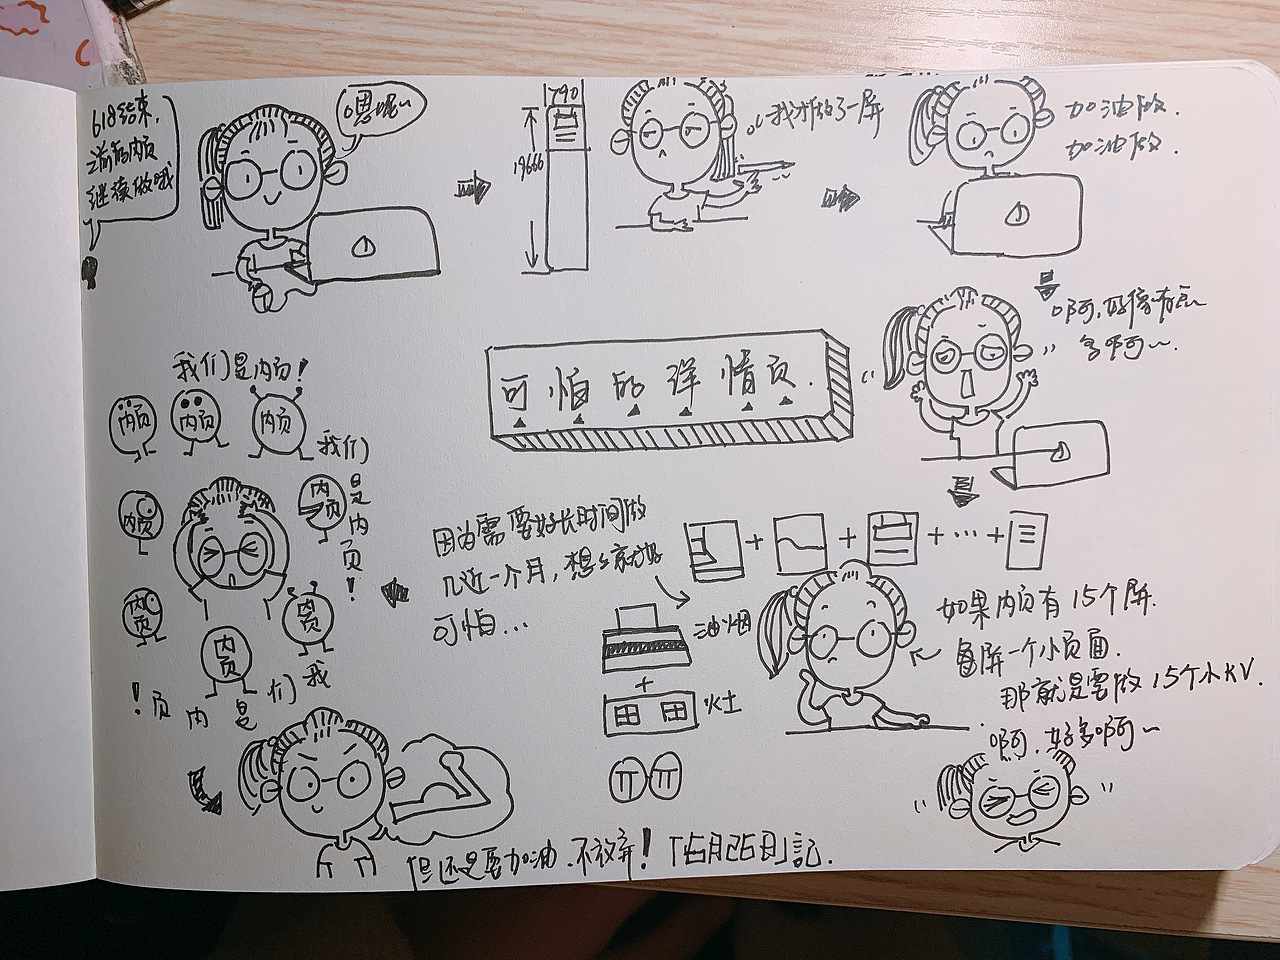 618结束,
之前的内页
继续做哦
嗯呢~
790
19666
我才做了一屏
加油做.
加油做.
啊,好像有点
多啊~
可怕的详情页.
如果内页有15个屏.
每屏一个小页面.
那就是要做15个小KV.
啊,好多啊~
因为需要好长时间做
几近一个月,想想就好
可怕...
油烟
火土
我们是内页!
内页
内页
内页
我们是内页!
内页
内页
内页
内页
内页
我们是内页!
但还是要加油.不放弃!「6月26日」記.